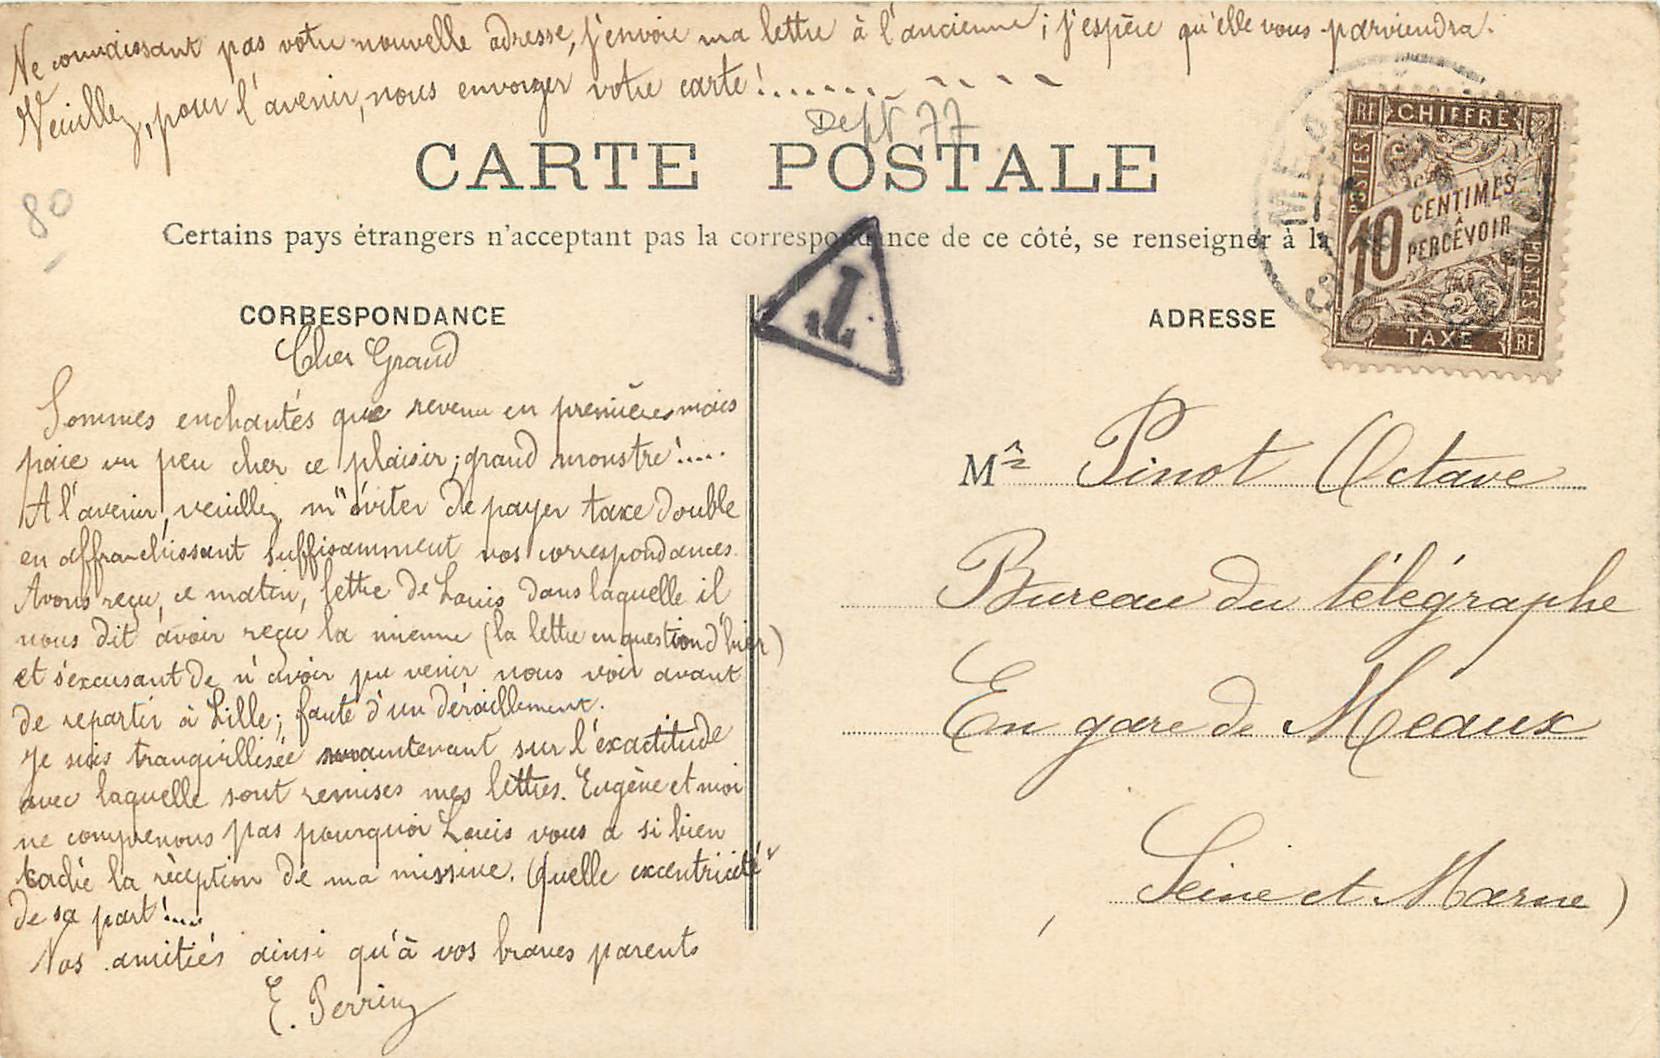 Ne connaissant pas votre nouvelle adresse, j'envoie ma lettre à l'ancienne ; j'espère qu'elle vous parviendra.
Veuillez, pour l'avenir, nous envoyer votre carte !........
Dept 77
80
CARTE POSTALE
Certains pays étrangers n'acceptant pas la correspondance de ce côté, se renseigner à la
RF CHIFFRE
POSTES
10 CENTIMES
À PERCEVOIR
POSTES
TAXE RF
T
CORRESPONDANCE
ADRESSE
Cher Grand
Sommes enchantés que revenu en premières mais
paie un peu cher ce plaisir ; grand monstre !.....
A l'avenir, veuillez m'éviter de payer taxe double
en affranchissant suffisamment vos correspondances.
Avons reçu, ce matin, lettre de Louis dans laquelle il
nous dit avoir reçu la mienne (la lettre en question d'hier)
et s'excusant de n'avoir pu venir nous voir avant
de repartir à Lille ; faute d'un déraillement.
Je suis tranquillisée maintenant sur l'exactitude
avec laquelle sont remises mes lettres. Eugène et moi
ne comprenons pas pourquoi Louis vous a si bien
caché la réception de ma missive. Quelle excentricité
de sa part !....
Nos amitiés ainsi qu'à vos braves parents
E. Perrin
Mr Pinot Octave
Bureau du télégraphe
En gare de Meaux
Seine et Marne)